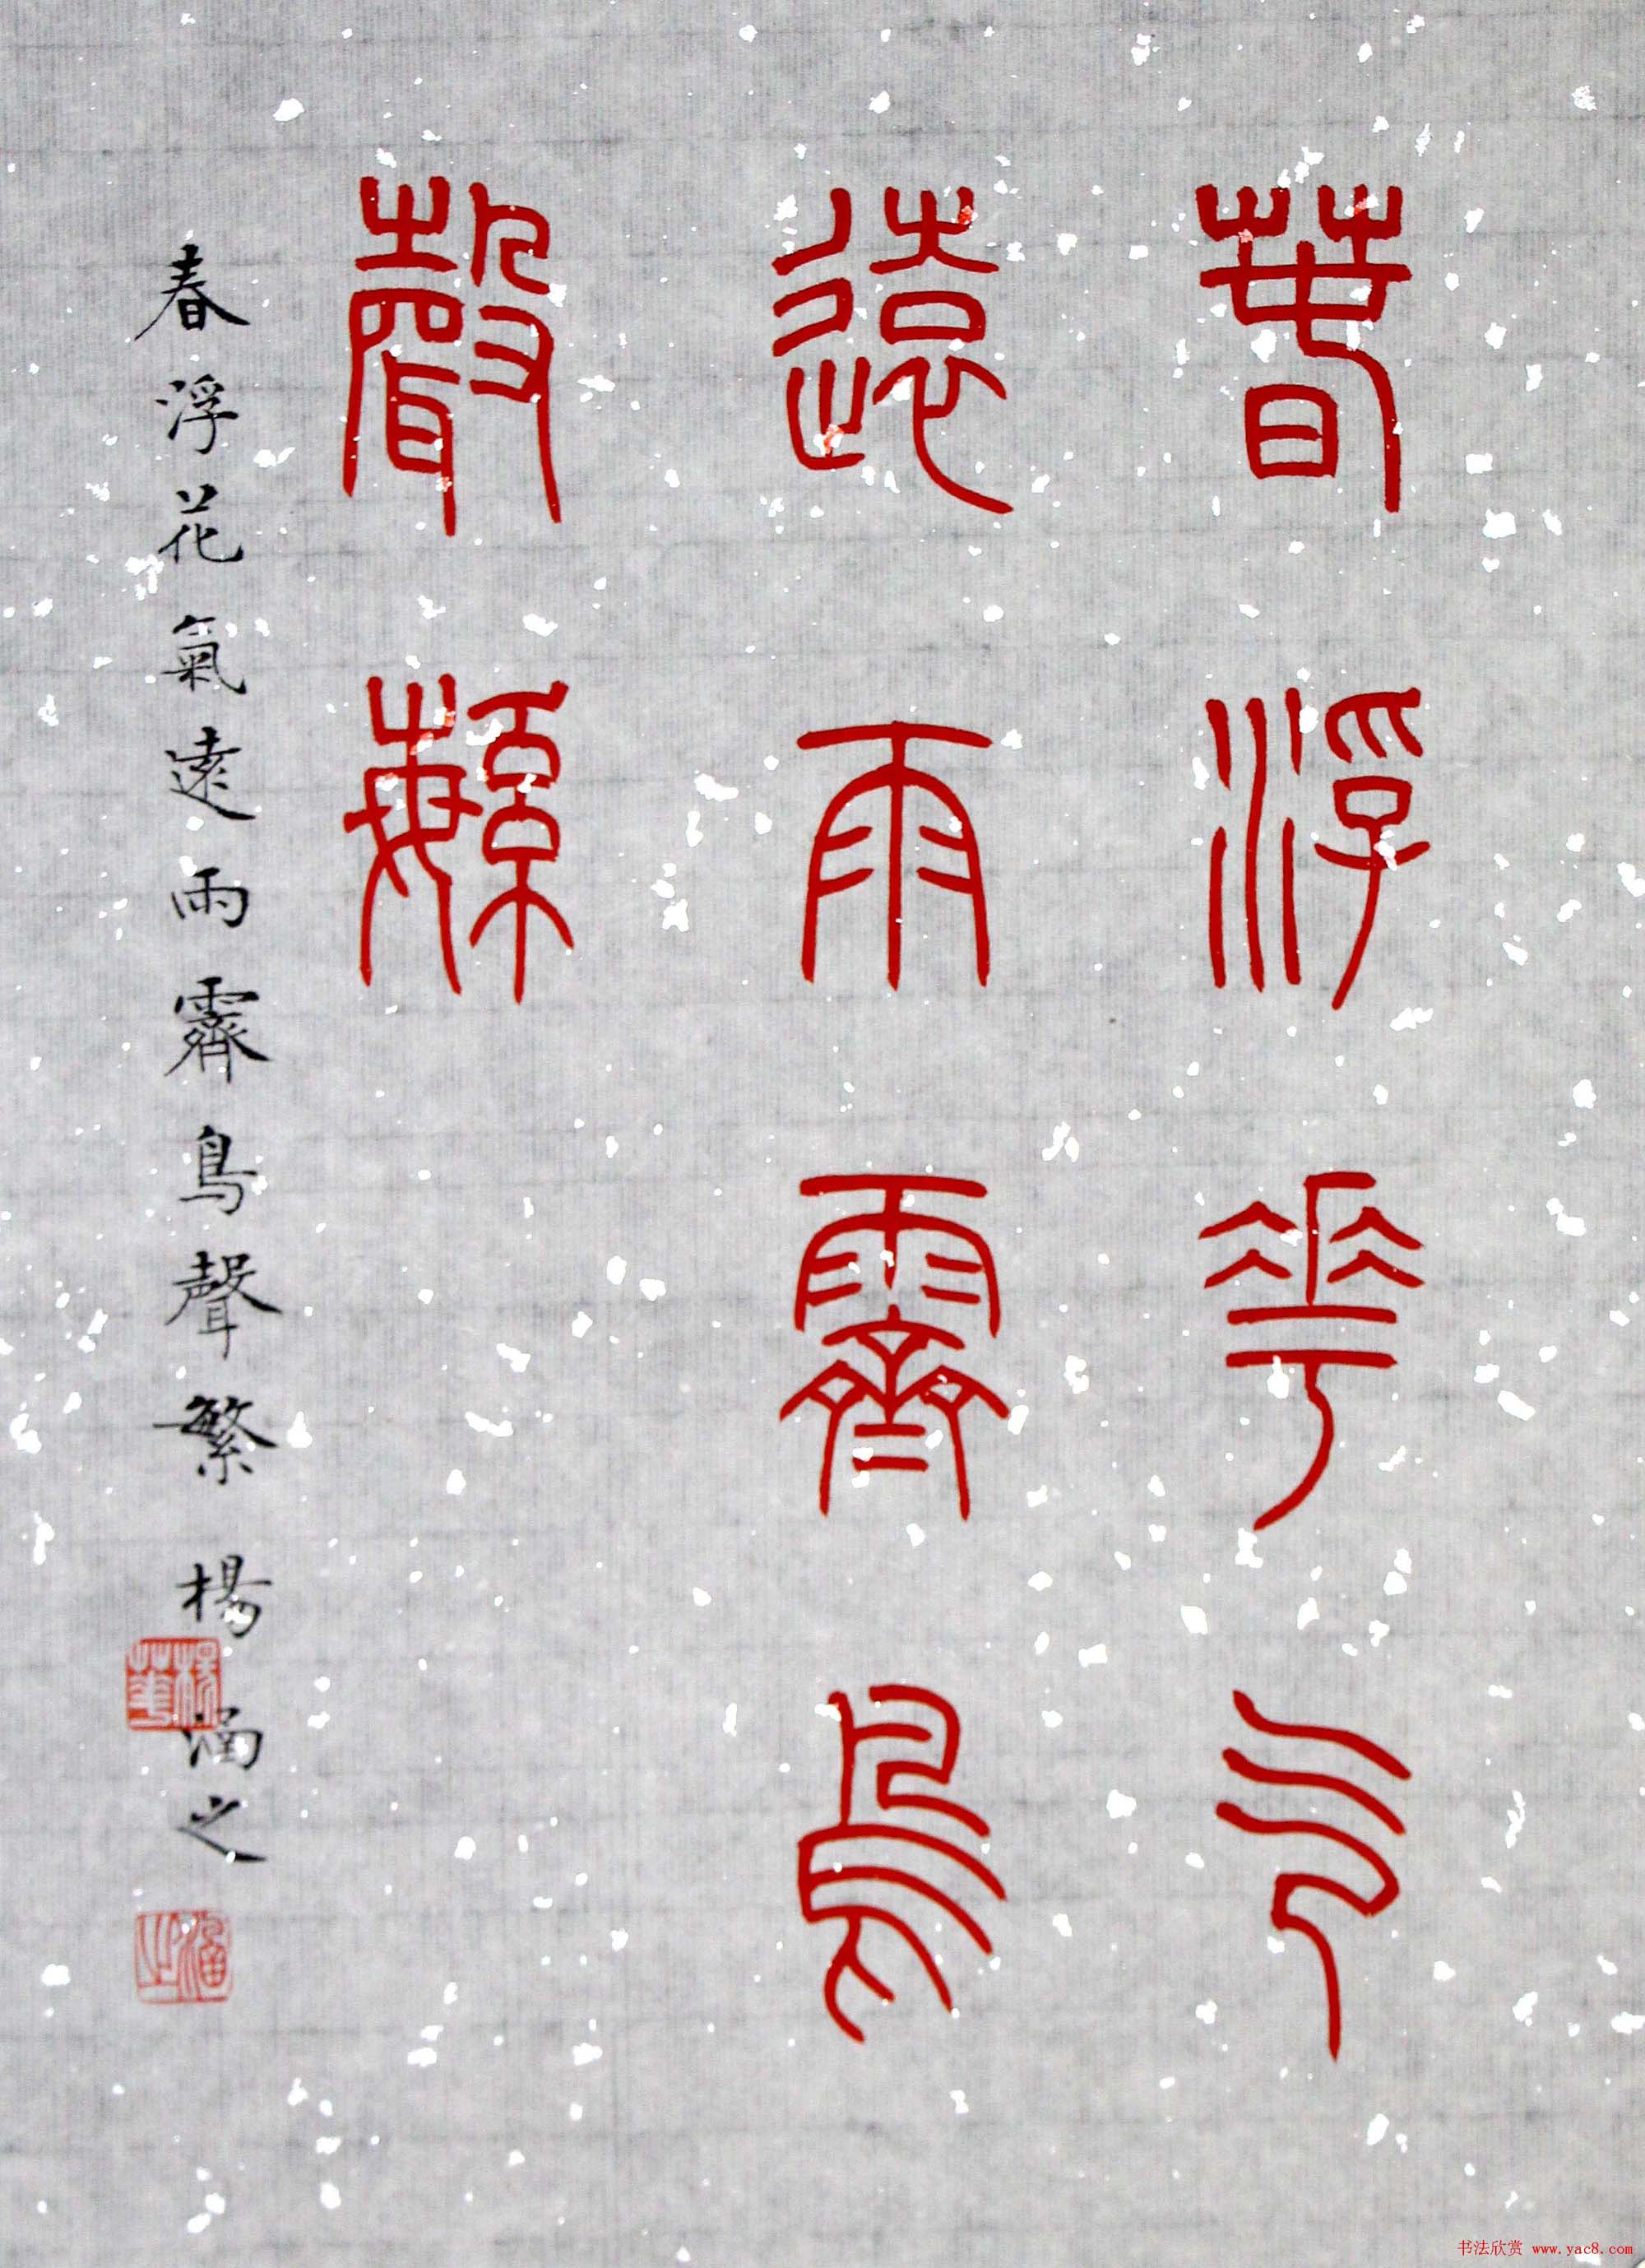 春浮花气
遠雨霽鳥
聲繁
春浮花氣遠雨霽鳥聲繁 楊涵之
楊華
涵之
书法欣赏 www.yac8.com